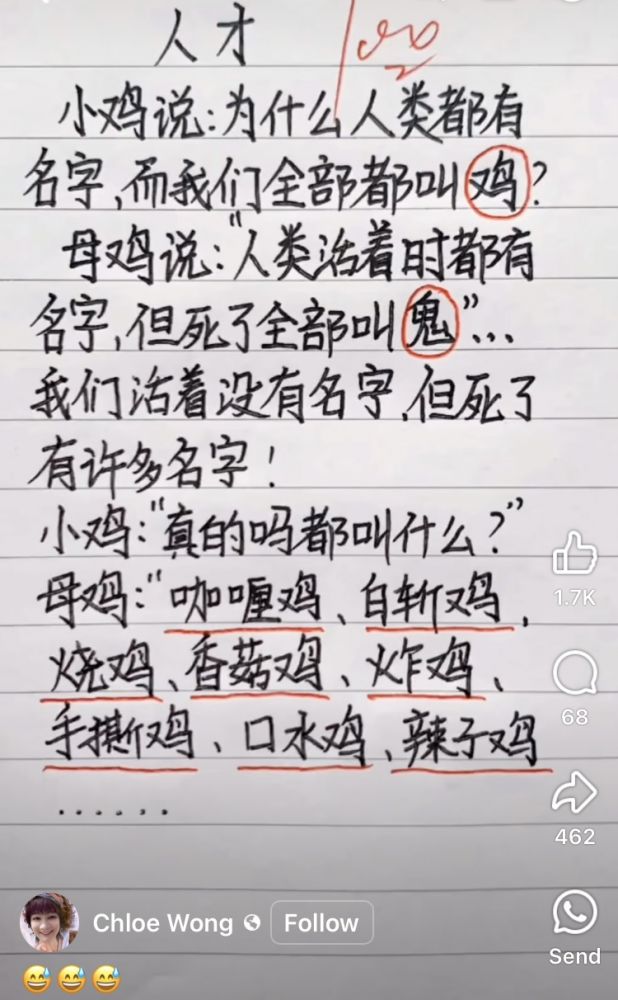 人才
小鸡说:为什么人类都有
名字,而我们全部都叫鸡?
母鸡说:"人类活着时都有
名字,但死了全部叫鬼"...
我们活着没有名字,但死了
有许多名字!
小鸡:"真的吗都叫什么?"
母鸡:"咖喱鸡、白斩鸡,
烧鸡、香菇鸡、炸鸡、
手撕鸡、口水鸡、辣子鸡
......
1.7K
68
462
Chloe Wong
Follow
Send